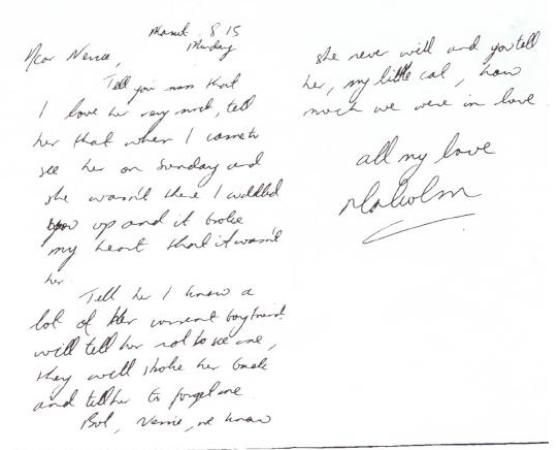 about 8.15
Monday
Dear Nessie,
Tell your mum that
I love her very much, tell
her that when I came to
see her on Sunday and
she wasn't there I cuddled
you up and it broke
my heart that it wasn't
her.
Tell her I know a
lot of her current boyfriend
will tell her not to see me,
they will stroke her back
and tell her to forget me.
But, Nessie, we know
she never will and you tell
her, my little cat, how
much we were in love.
all my love
Malcolm